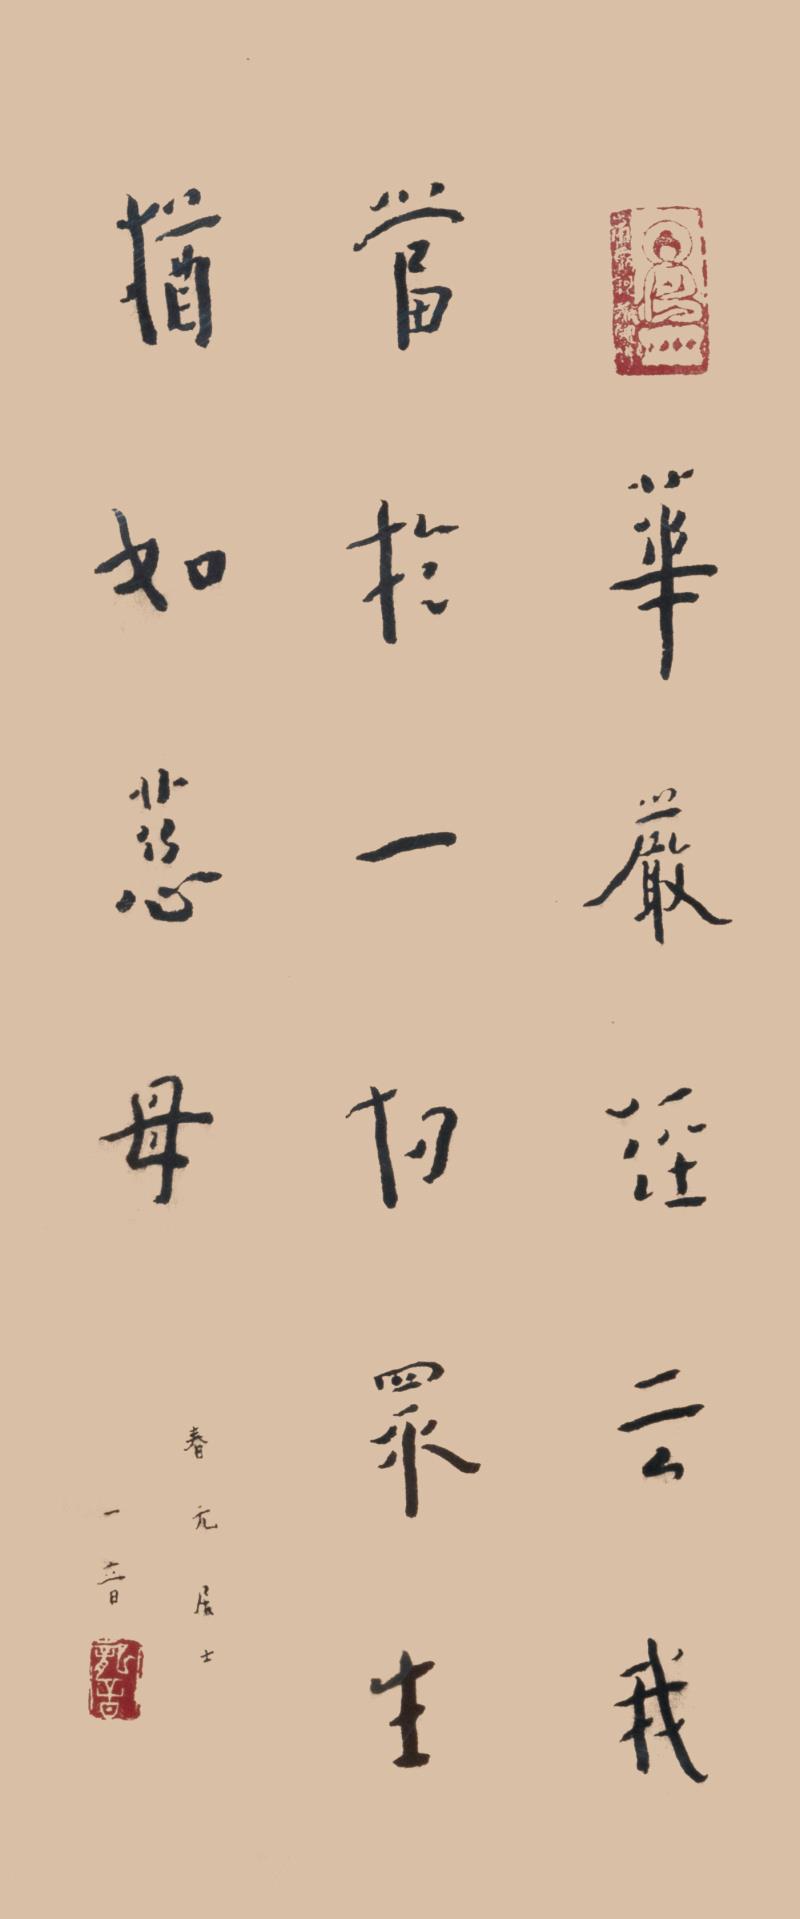 華嚴經云我
當於一切眾生
猶如慈母
春亢居士
一音
龍音